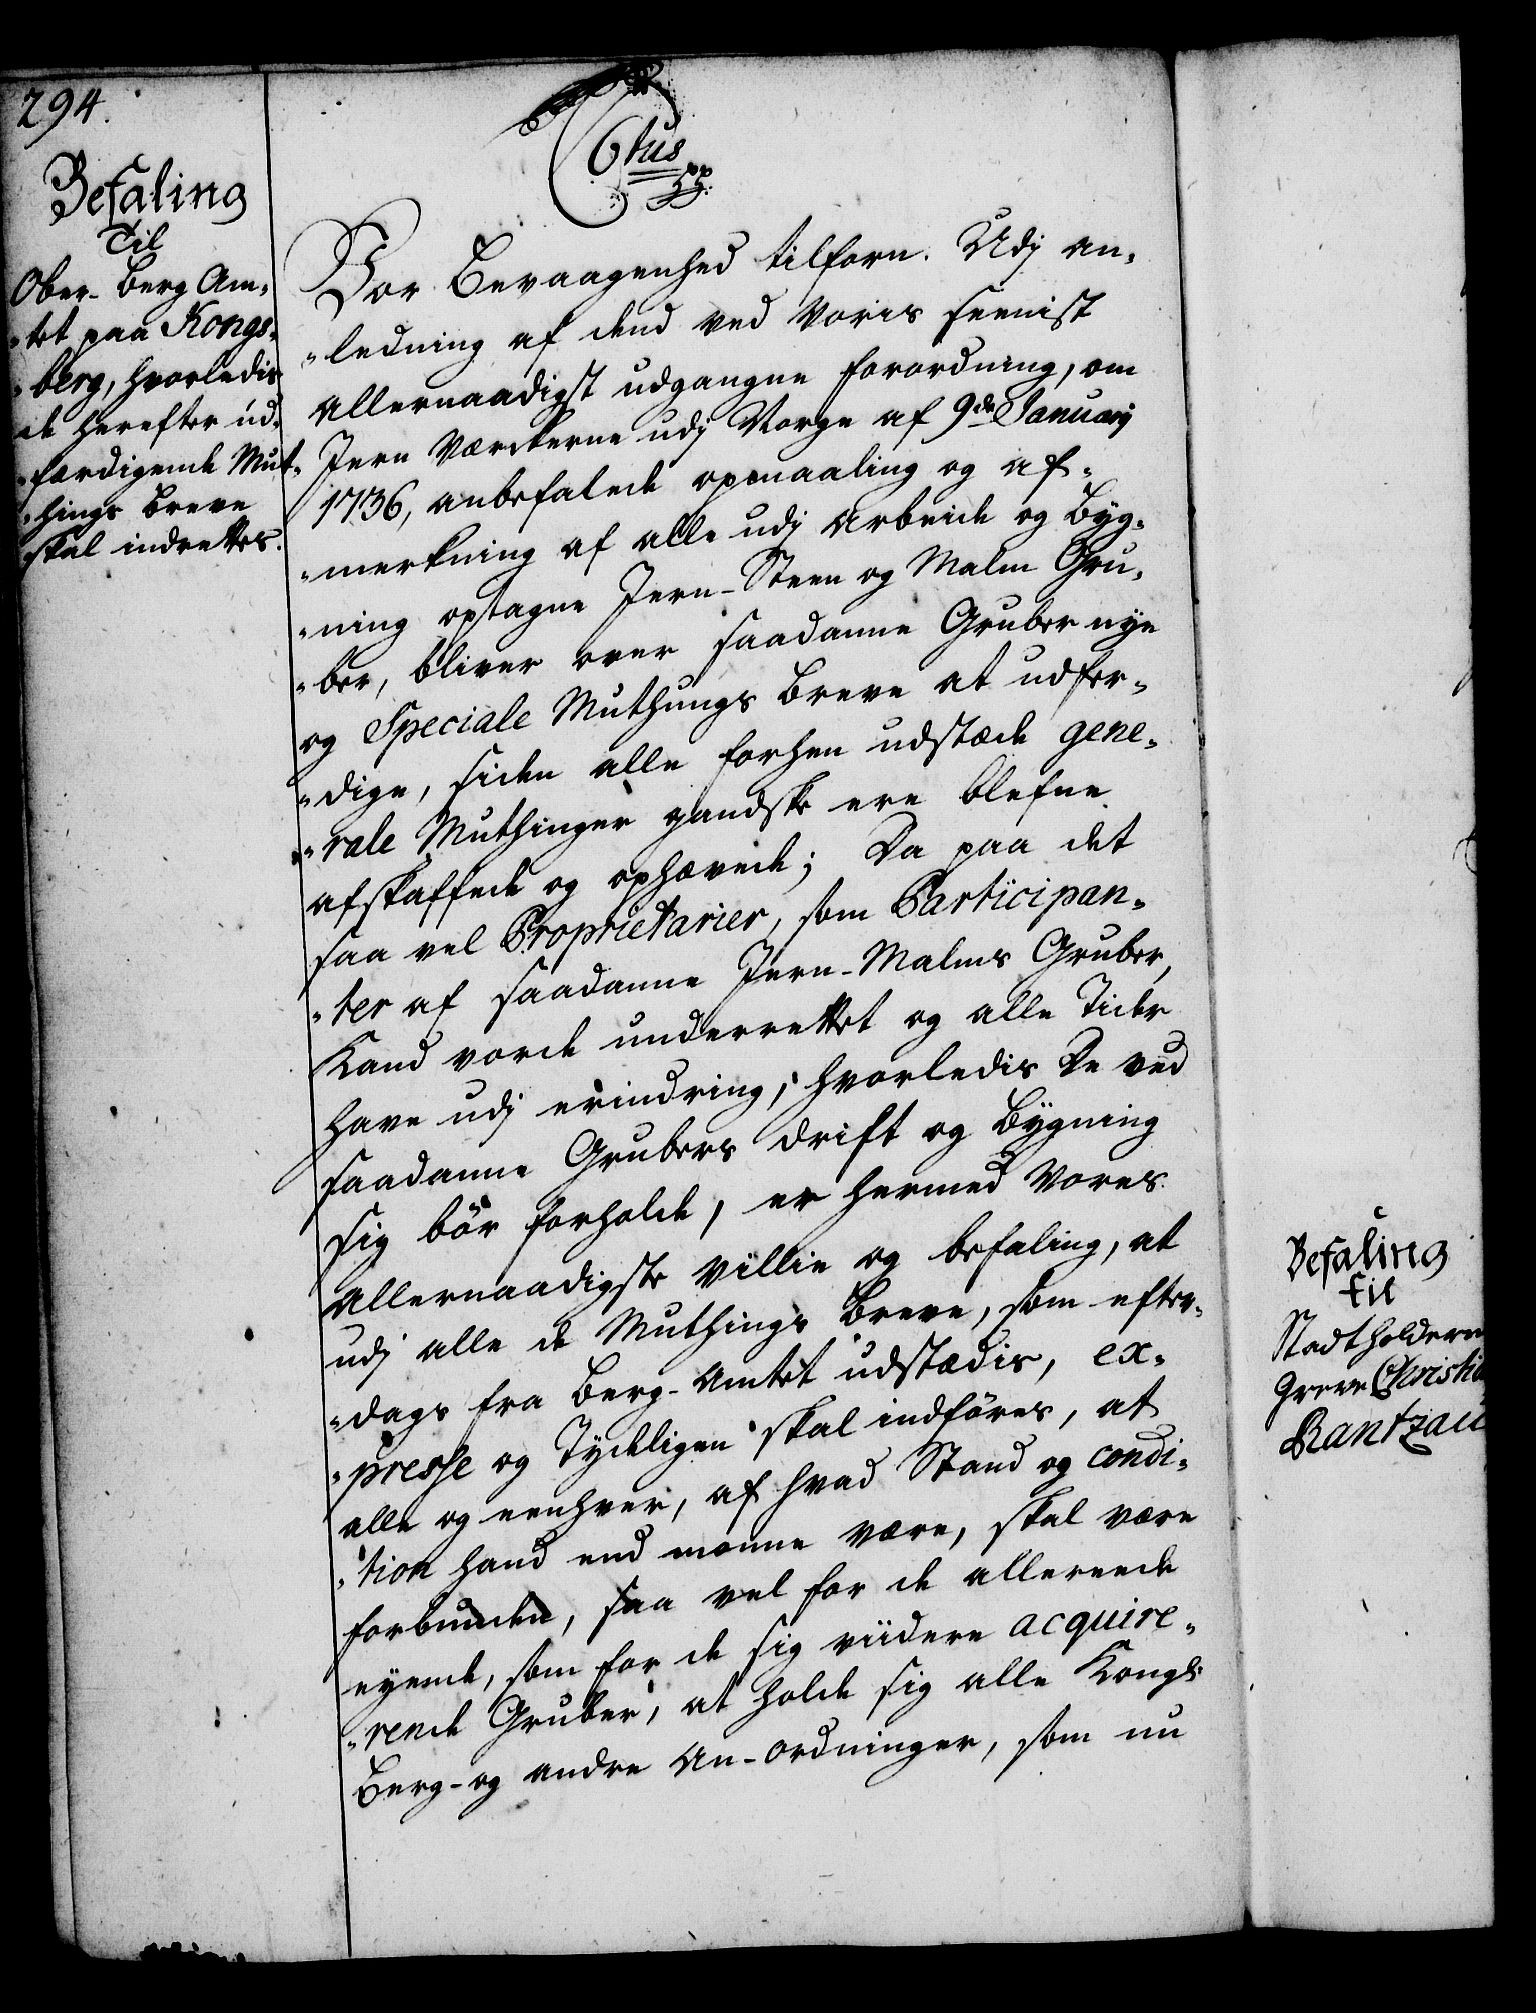 294.
Befaling
til
Ober-Berg Am„
„tet paa Kongs„
„berg, hvorledis
de herefter ud„
„færdigende Mut„
„hings Breve
skal indrettes.
C6tus
pp.
Vor Bevaagenhed tilforn. Udj an„
„ledning af dend ved Voris seenist
allernaadigst udgangne forordning, om
Jern Værckerne udj Norge af 9de January
1736, anbefalede opmaaling og af„
„merkning af alle udj arbeide og Byg„
„ning optagne Jern-Steen og Malm Gru„
„ber, bliver over saadanne Gruber nye
og Speciale Muthungs Breve at udfer„
„dige, siden alle forhen udstæde gene„
„rale Muthinger gandske ere blefne
afskaffede og ophævede; Da paa det
saa vel Proprietarier, som Participan„
„ter af saadanne Jern-Malms Gruber,
Kand vorde underrettet og alle Tider
have udj erindring, hvorledis De ved
saadanne Grubers drift og Bygning
sig bör forholde, er hermed Vores
allernaadigste Villie og befaling, at
udj alle de Muthings Breve, som efter„
„dags fra Berg-Amtet udstædis, ex„
„presse og Tydeligen skal indföres, at
alle og eenhver, af hvad Stand og condi„
„tion hand end monne være, skal være
forbunden, saa vel for de allereede
eyende, som for de sig viidere acquire„
„rende Gruber, at holde sig alle Kongl:
Berg- og andre An-ordninger, som nu
Befaling
til
Stadtholderen
Greve Christia
Rantzau